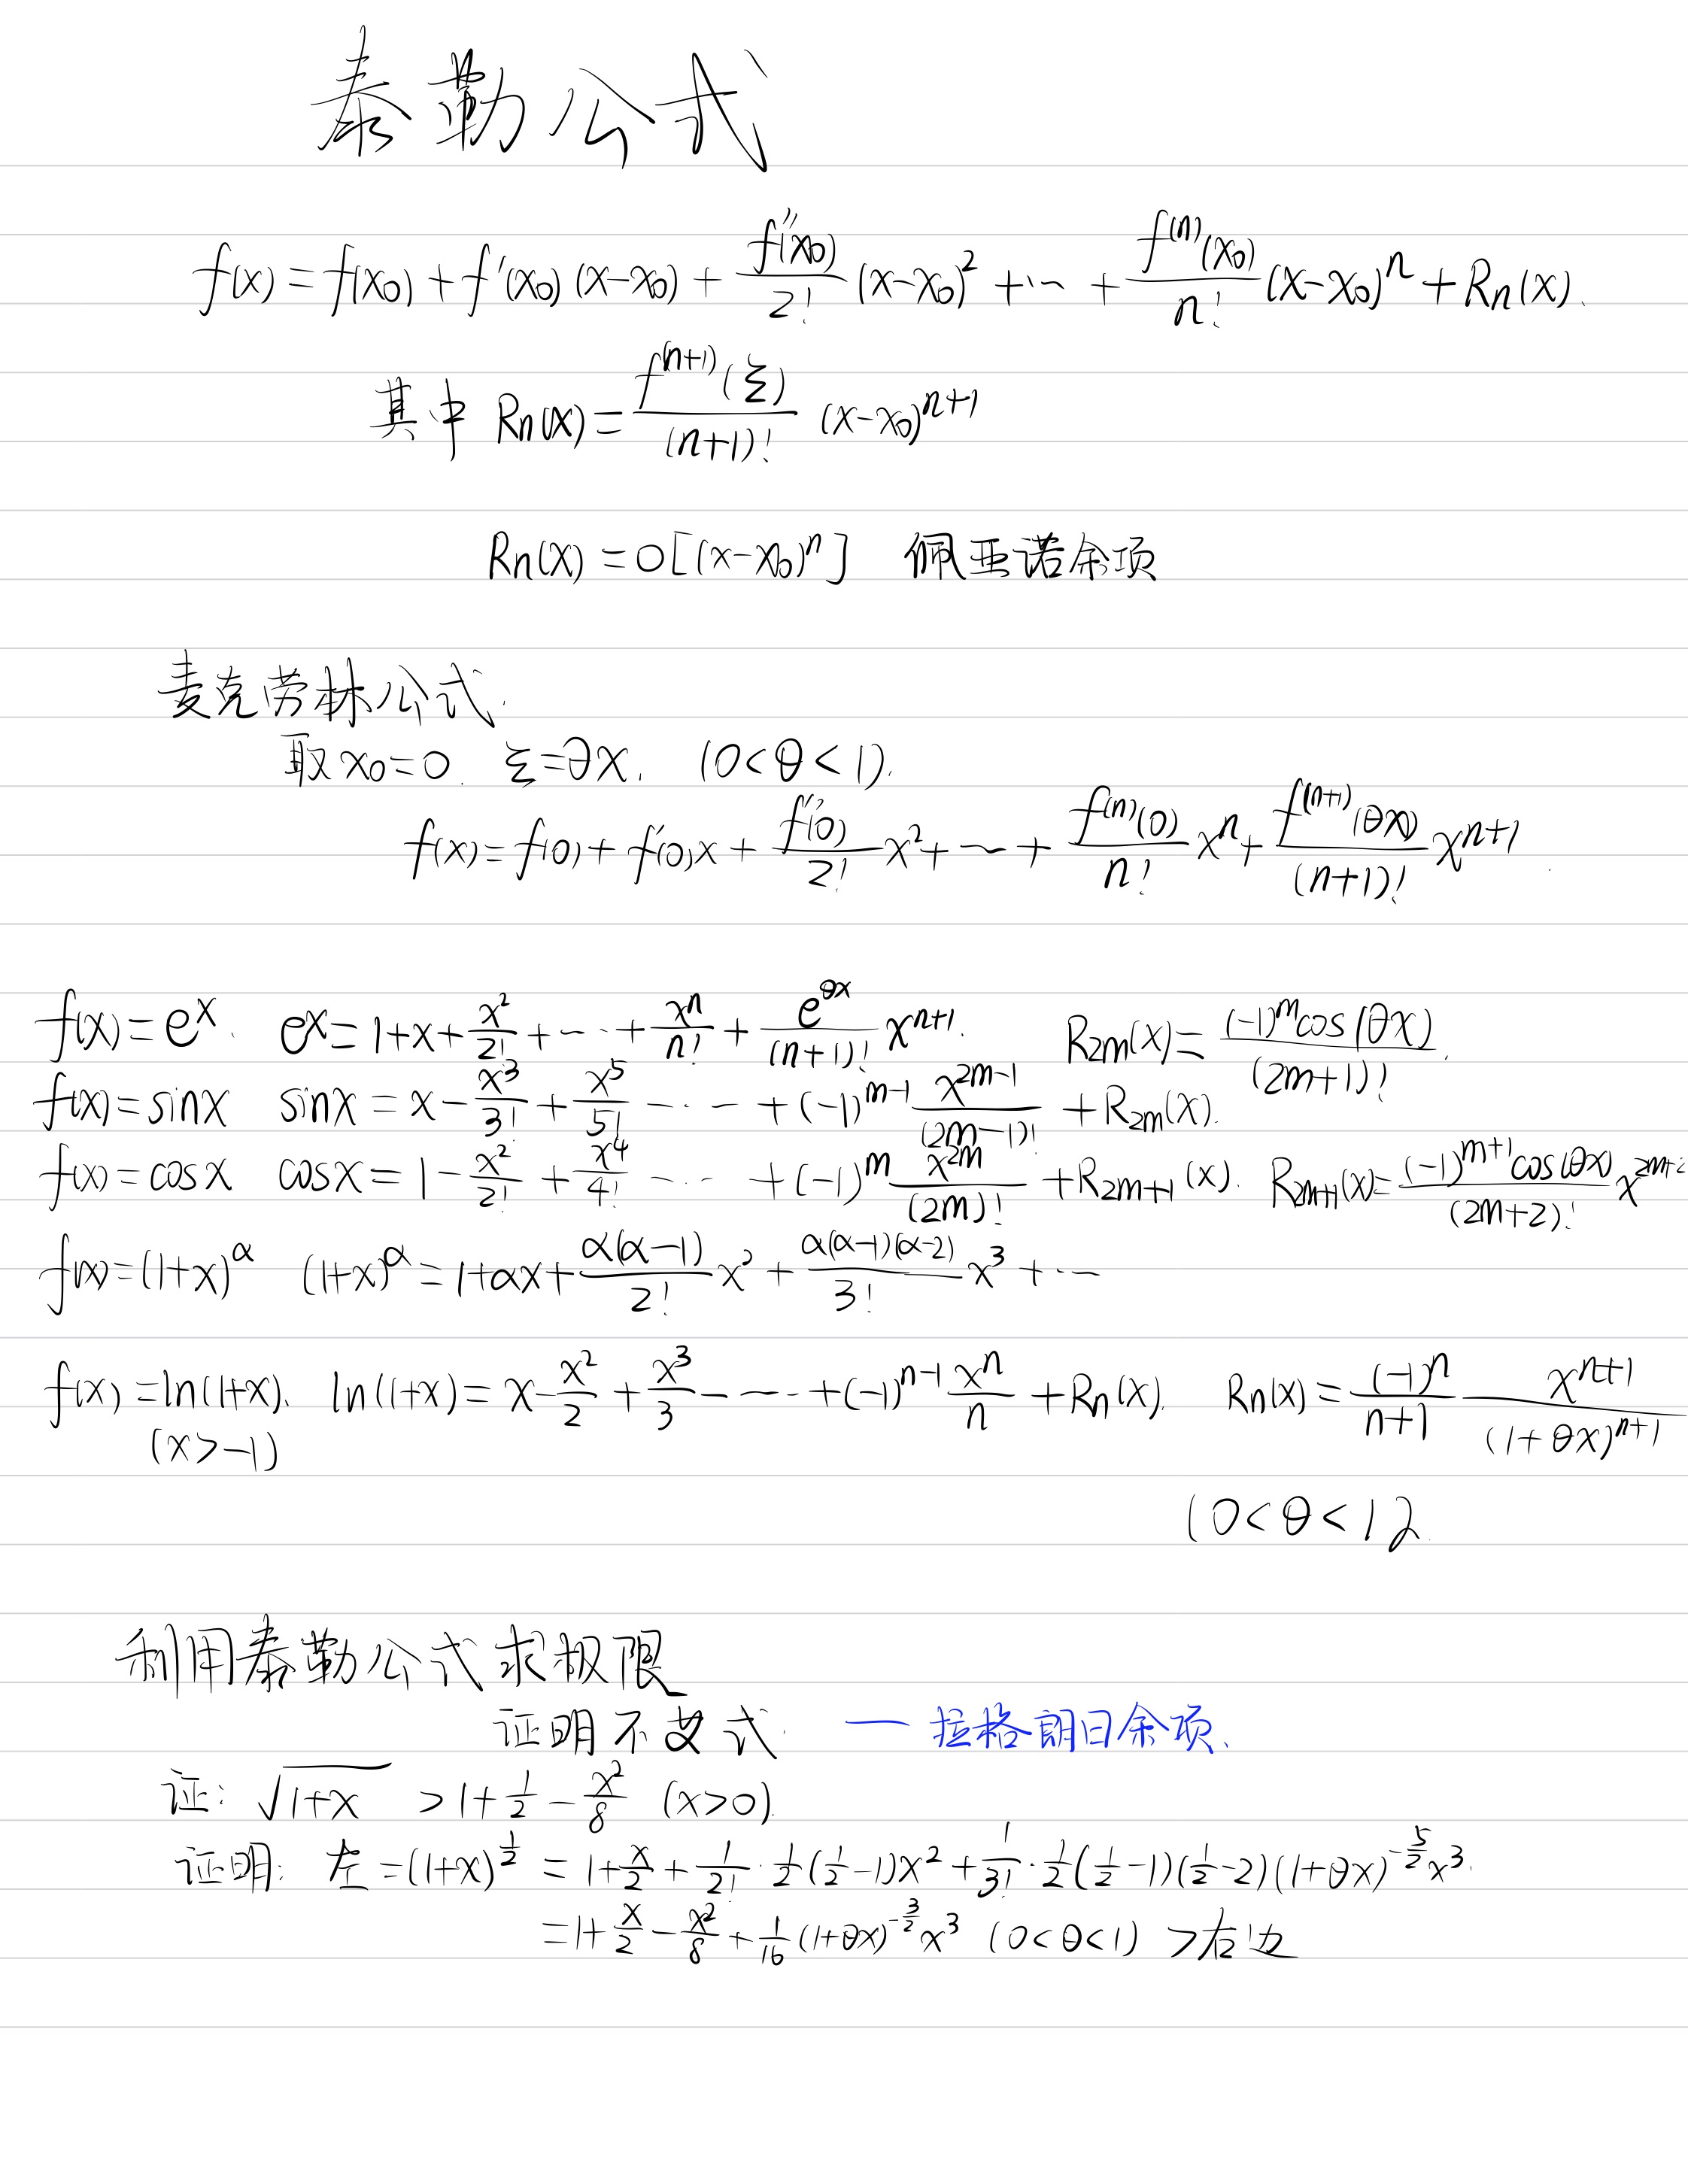 泰勒公式
f(x) = f(x₀) + f'(x₀)(x-x₀) + \frac{f''(x₀)}{2!}(x-x₀)² + ⋯ + \frac{f^{(n)}(x₀)}{n!}(x-x₀)^n + Rn(x).
其中 Rn(x) = \frac{f^{(n+1)}(ξ)}{(n+1)!} (x-x₀)^{n+1}
Rn(x) = o[(x-x₀)^n] 佩亚诺余项
麦克劳林公式.
取 x₀=0. ξ=θx. (0<θ<1).
f(x) = f(0) + f'(0)x + \frac{f''(0)}{2!}x² + ⋯ + \frac{f^{(n)}(0)}{n!}x^n + \frac{f^{(n+1)}(θx)}{(n+1)!}x^{n+1}.
f(x) = e^x. e^x = 1+x+\frac{x²}{2!}+⋯+\frac{x^n}{n!}+\frac{e^{θx}}{(n+1)!}x^{n+1}. R_{2m}(x) = \frac{(-1)^m cos(θx)}{(2m+1)!}.
f(x) = sinx sinx = x-\frac{x³}{3!}+\frac{x⁵}{5!}-⋯+(-1)^{m-1}\frac{x^{2m-1}}{(2m-1)!}+R_{2m}(x).
f(x) = cosx cosx = 1-\frac{x²}{2!}+\frac{x⁴}{4!}⋯+(-1)^m\frac{x^{2m}}{(2m)!}+R_{2m+1}(x). R_{2m+1}(x)=\frac{(-1)^{m+1}cos(θx)}{(2m+2)!}x^{2m+2}
f(x) = (1+x)^α (1+x)^α = 1+αx+\frac{α(α-1)}{2!}x²+\frac{α(α-1)(α-2)}{3!}x³+⋯
f(x) = ln(1+x). ln(1+x) = x-\frac{x²}{2}+\frac{x³}{3}-⋯+(-1)^{n-1}\frac{x^n}{n}+Rn(x). Rn(x) = \frac{(-1)^n}{n+1}\frac{x^{n+1}}{(1+θx)^{n+1}}
(x>-1)
(0<θ<1).
利用泰勒公式求极限
证明不等式. — 拉格朗日余项.
证: \sqrt{1+x} > 1+\frac{1}{2}-\frac{x²}{8} (x>0).
证明: 左 = (1+x)^{\frac{1}{2}} = 1+\frac{x}{2}+\frac{1}{2!}·\frac{1}{2}(\frac{1}{2}-1)x²+\frac{1}{3!}·\frac{1}{2}(\frac{1}{2}-1)(\frac{1}{2}-2)(1+θx)^{-\frac{5}{2}}x³.
= 1+\frac{x}{2}-\frac{x²}{8}+\frac{1}{16}(1+θx)^{-\frac{3}{2}}x³ (0<θ<1) >右边